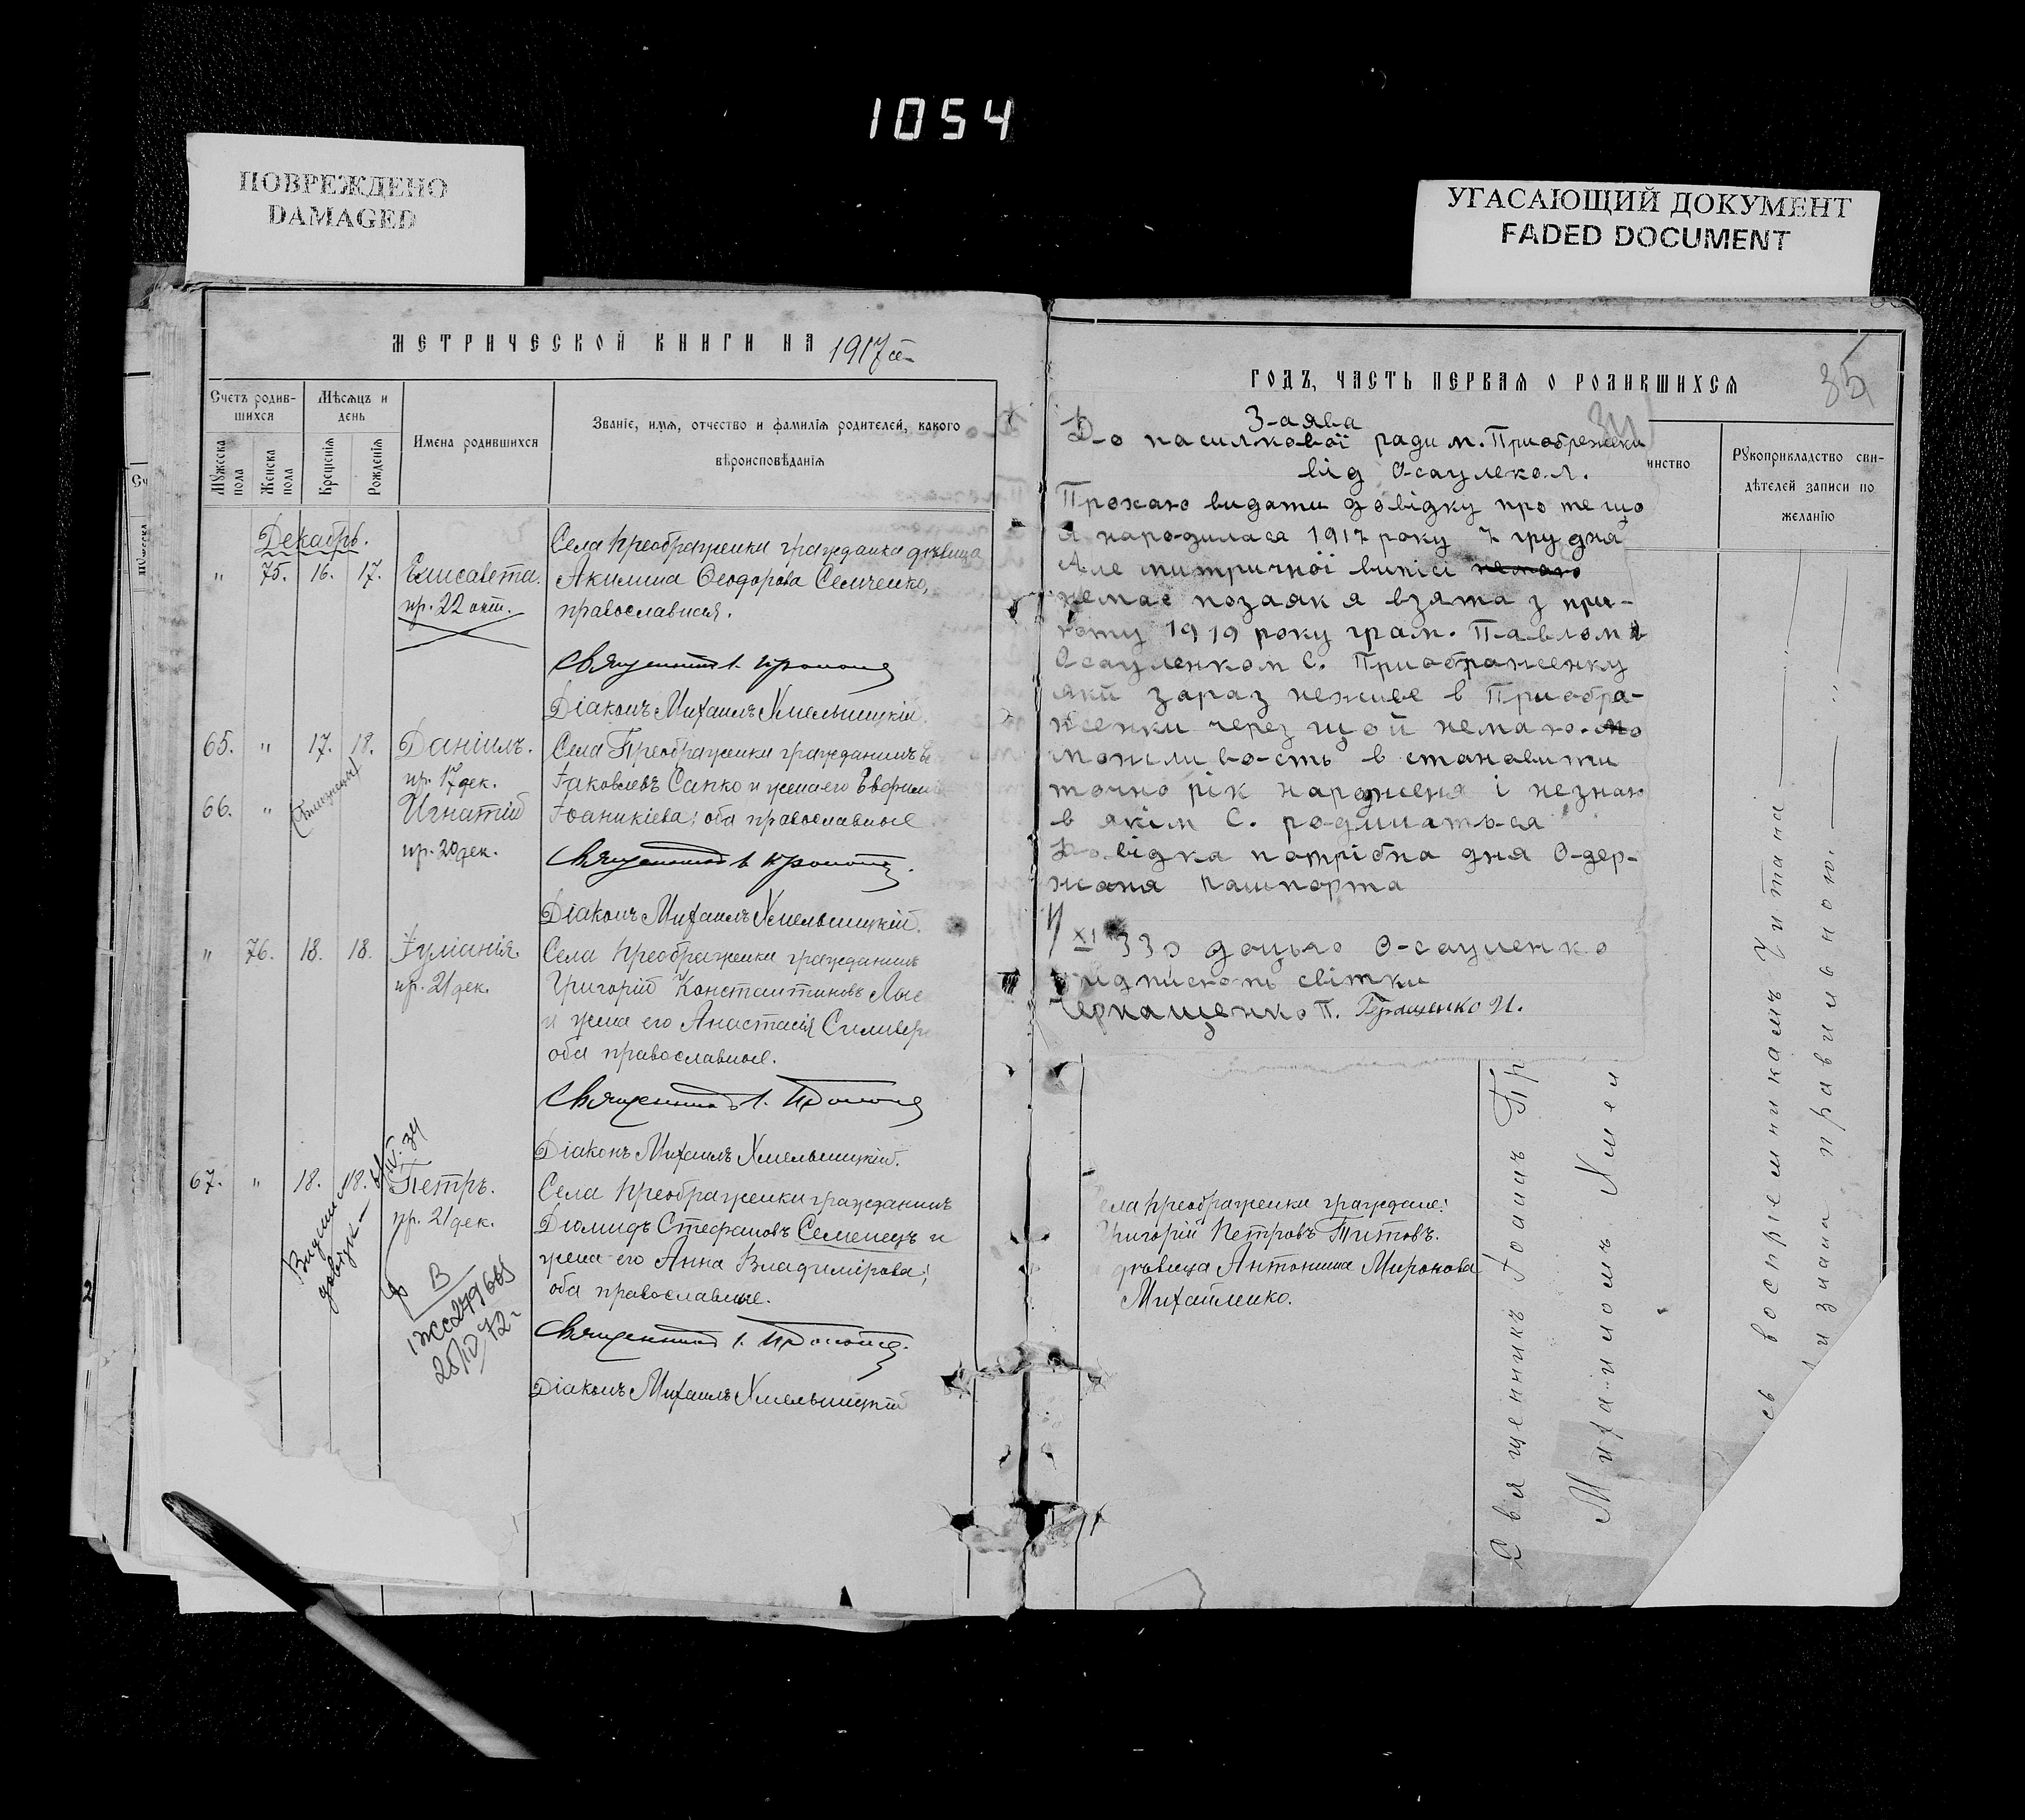 1054
ПОВРЕЖДЕНО
DAMAGED
УГАСАЮЩИЙ ДОКУМЕНТ
FADED DOCUMENT
МЕТРИЧЕСКОЙ КНИГИ НА 1917й
Счетъ родив-
шихся
Мѣсяцъ и
день
Мужеска
пола
Женска
пола
Крещенія
Рожденія
Имена родившихся
Званіе, имя, отчество и фамилія родителей, какого
вѣроисповѣданія
Декабрь.
" 75. 16. 17. Елисавета.
пр. 22 окт.
Села Преображенки гражданка дѣвица
Акилина Ѳеодорова Семченко,
православная.
Священникъ І.
Діаконъ Михаилъ Хмельницкій.
65. " 17. 18. Даніилъ.
пр. 17 дек.
66. " (близнецы) Игнатій
пр. 20 дек.
Села Преображенки гражданинъ
Іаковлевъ Санко и жена его
Іоаникіева; оба православные
Священникъ І.
Діаконъ Михаилъ Хмельницкій.
" 76. 18. 18. Іуліанія.
пр. 21 дек.
Села Преображенки гражданинъ
Григорій Константиновъ
и жена его Анастасія
оба православные.
Священникъ І.
Діаконъ Михаилъ Хмельницкій.
67. " 18. 18. Петръ.
пр. 21 дек.
Села Преображенки гражданинъ
Діомидъ Стефановъ Семенецъ и
жена его Анна Владимірова;
оба православные.
Священникъ І.
Діаконъ Михаилъ Хмельницкій
ГОДЪ, ЧАСТЬ ПЕРВАЯ О РОДИВШИХСЯ
35
З-аява
Д-о насилкової ради м. Приображенки
від Осауленко Л.
Прохаю видати довідку про те що
я народилася 1917 року 7 грудня
Але митричної виписі немаю
немає позаяк я взята з при-
юту 1919 року грам. Павлом
Осауленком с. Приображенку
який зараз неживе в Приобра-
женки через що й немаю. мо
можливо-сть в становити
точно рік народженя і незнаю
в якім с. родилаться
Довідка потрібна для О-дер-
жаня пашпорта
XI 33 р
О-сауленко
підписють світки
П. Геращенко И.
инство
Рукоприкладство сви-
дѣтелей записи по
желанію
ела Преображенки граждане:
ригорій Петровъ Титовъ.
дѣвица Антонина Миронова
Михайленко.
Священникъ Іоаннъ Пр
Михаиломъ Хмел
сь воспріемникамъ читана
изнана правильною.